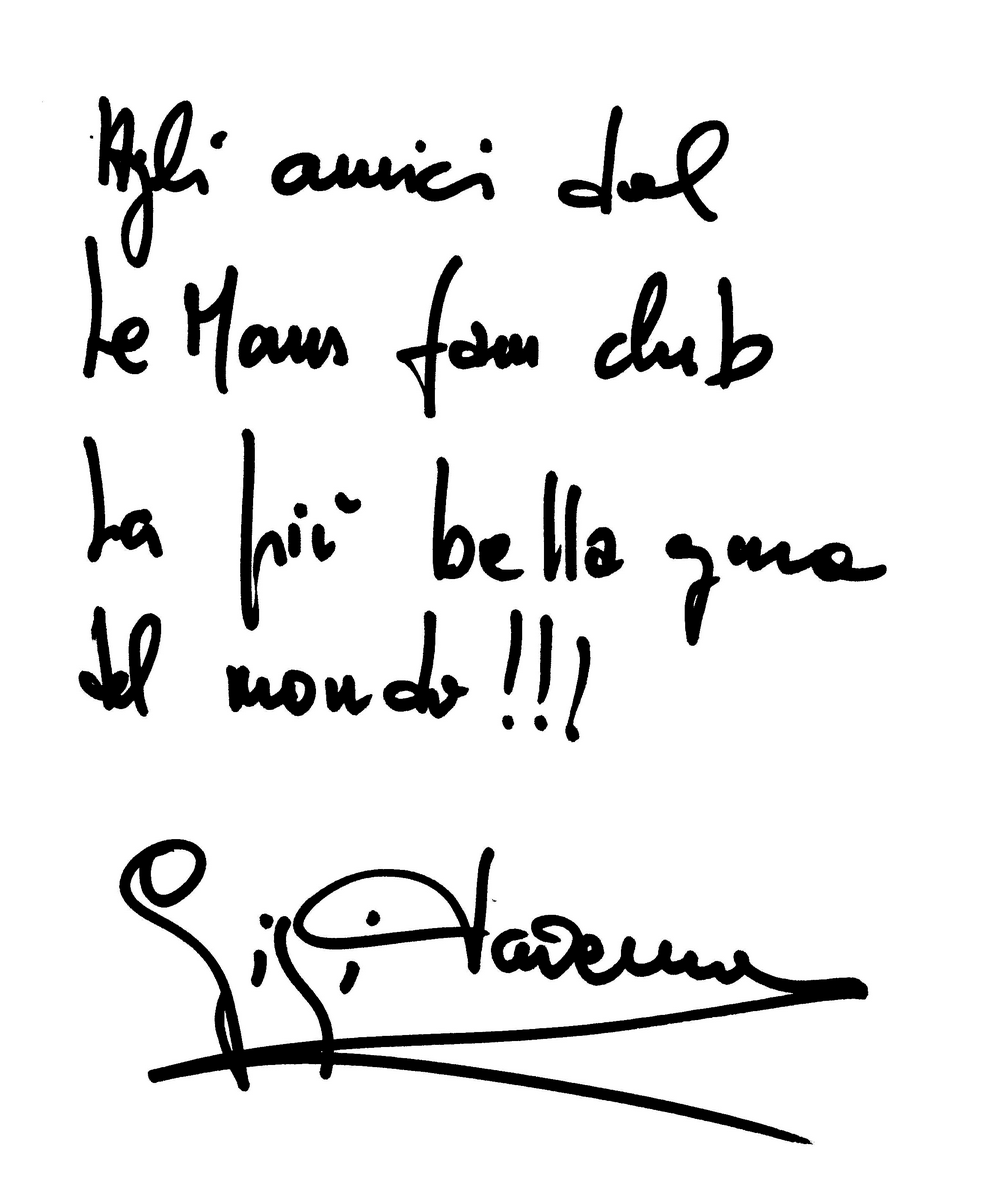 Agli amici del
Le Mans fan club
La più bella gara
del mondo!!!
Gigi Taverna